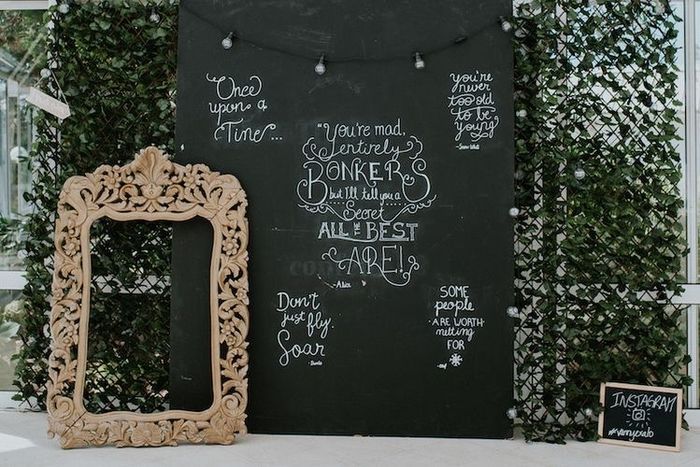 Once
upon a
Time...
you're
never
too old
to be
young
- Snow White
"You're mad,
entirely
BONKERS
but I'll tell you a
Secret
ALL THE BEST
ARE!
- Alice
Don't
just fly.
Soar
- Dumbo
SOME
people
ARE WORTH
melting
FOR
- Olaf
INSTAGRAM